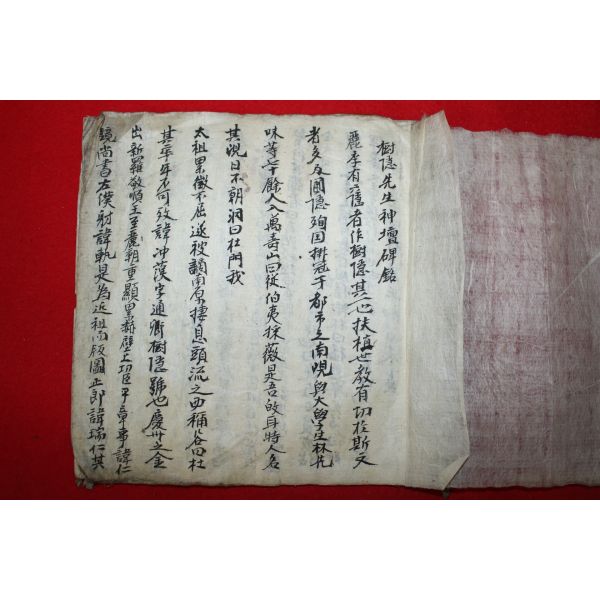 樹隱先生神壇碑銘
麗季有舊者作樹隱其一也扶植世教有功於斯文
者多及圃隱殉国掛冠于都市之南峴與大學生林先
味等七十餘人入萬壽山曰從伯夷採薇是吾故耳時人名
其峴曰不朝洞曰杜門我
太祖累徵不屈遂被謫南原棲息頭流之西稱谷曰杜
其卒年不可攷諱冲漢字通卿樹隱號也慶州之金
出新羅敬順王至麗朝重顯累赫壁上功臣平章事諱仁
鏡尚書左僕射諱軌是為近祖而版圖正郎諱瑞仁其